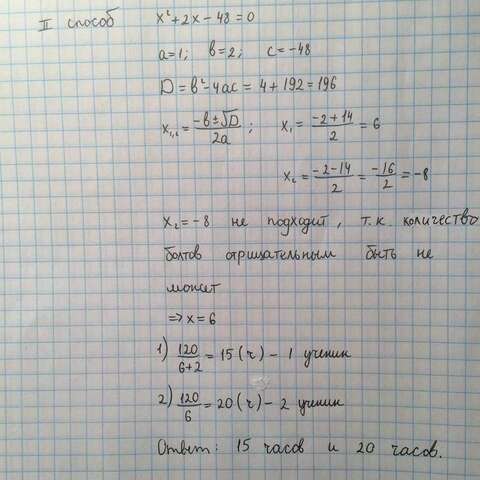 II способ x²+2x-48=0
a=1; b=2; c=-48
D=b²-4ac=4+192=196
x₁,₂=(-b±√D)/2a; x₁=(-2+14)/2=6
x₂=(-2-14)/2=-16/2=-8
x₂=-8 не подходит, т.к. количество
болтов отрицательным быть не
может
⇒x=6
1) 120/(6+2)=15(ч)-1 ученик
2) 120/6=20(ч)-2 ученик
Ответ: 15 часов и 20 часов.